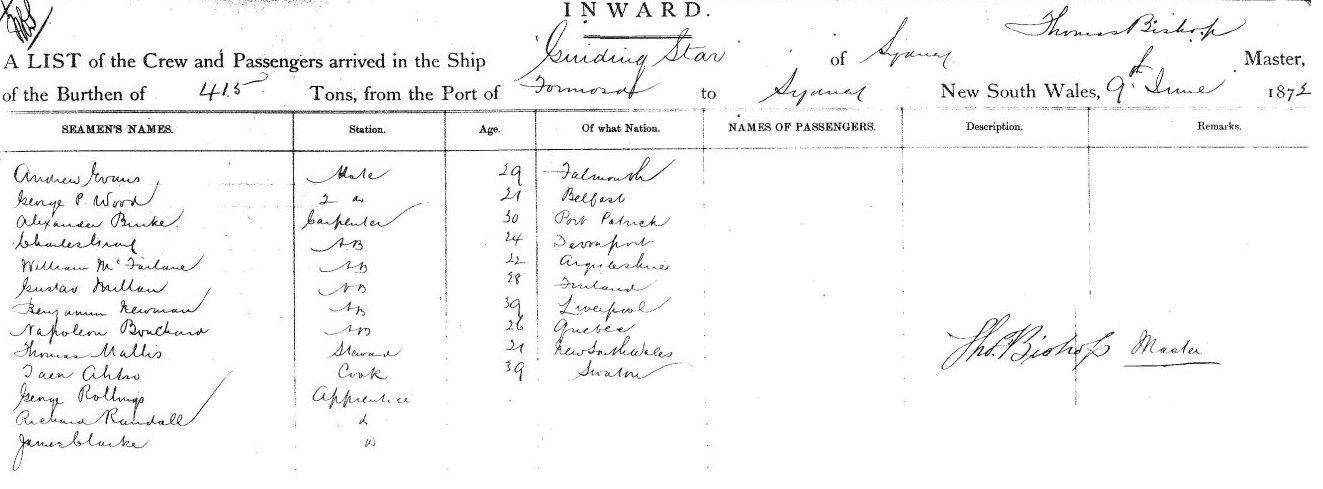 INWARD.
Thomas Bishop
A LIST of the Crew and Passengers arrived in the Ship 'Guiding Star' of Sydney Master,
of the Burthen of 415 Tons, from the Port of Formosa to Sydney New South Wales, 9th June 1872
SEAMEN'S NAMES. Station. Age. Of what Nation. NAMES OF PASSENGERS. Description. Remarks.
Andrew Evans Mate 29 Falmouth
George P. Wood 2 21 Belfast
Alexander Burke Carpenter 30 Port Patrick
Charles AB 24 Devonport
William McFarlane AB 22 Argyleshire
Gustav AB 28 Finland
Benjamin Newman AB 39 Liverpool
Napoleon Bouchard AB 26 Quebec
Thomas Mallis Steward 21 New South Wales
Cook 39 Swatow
George Rollings Apprentice
Richard Randall
James Clarke
Tho. Bishop Master